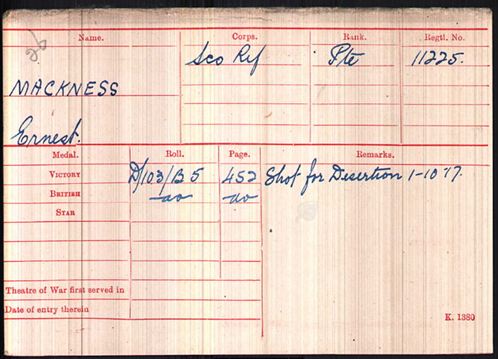 Name. Corps. Rank. Regtl. No.
26
Sco Rif Pte 11225.
MACKNESS
Ernest.
Medal. Roll. Page. Remarks.
VICTORY D/103/B5 452 Shot for Desertion 1-10-17.
BRITISH -do- -do-
STAR
Theatre of War first served in
Date of entry therein
K. 1380